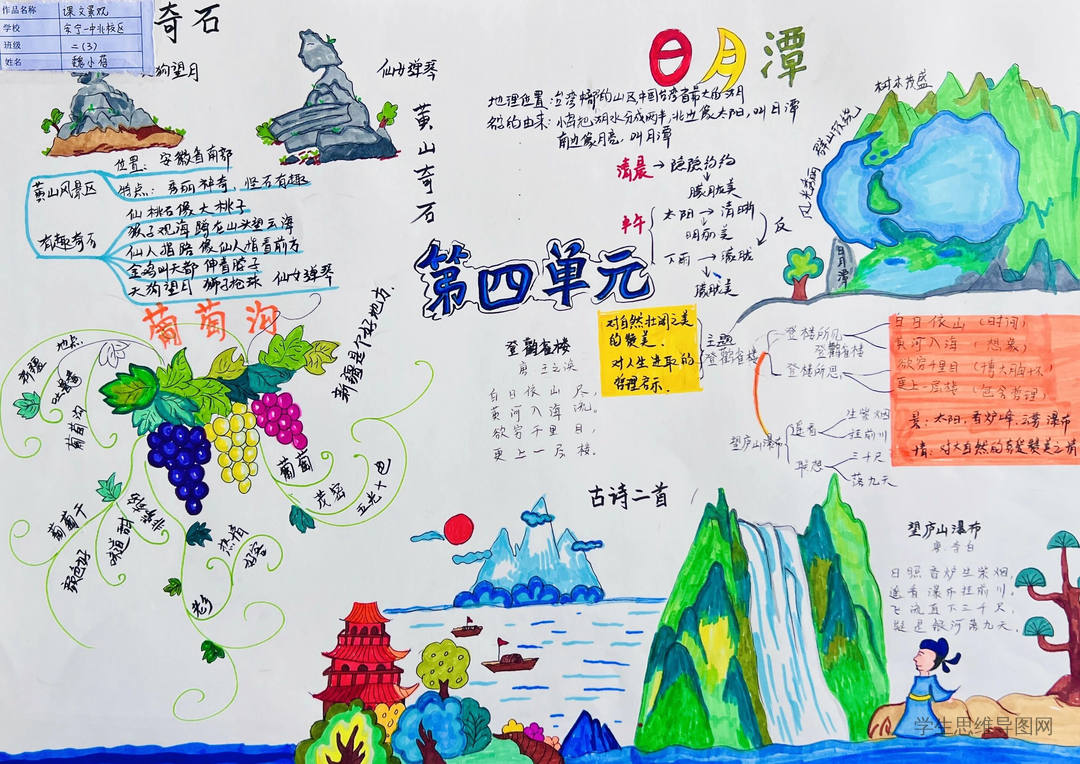 作品名称 课文景观
学校 安宁一中北校区
班级 二(3)
姓名
奇石
狗望月
仙女弹琴
黄山奇石
黄山风景区
位置：安徽省南部
特点：秀丽神奇，怪石有趣
有趣奇石
仙桃石像大桃子
猴子观海 蹲在山头望云海
仙人指路 像仙人指着前方
金鸡叫天都 伸着脖子
天狗望月 狮子抢球 仙女弹琴
日月潭
地理位置：
中国台湾省最大的湖
名的由来：小岛把湖水分成两半，北边像太阳，叫日潭
南边像月亮，叫月潭
清晨→隐隐约约
朦胧美
中午
太阳→清晰
明丽美
下雨→朦胧
朦胧美
反
树木茂盛
群山环绕
风光秀丽
日月潭
第四单元
葡萄沟
新疆是个好地方.
新疆
地点
吐鲁番
葡萄沟
葡萄
茂密
五光十色
葡萄干
颜色好
味道甜
非常有名
热情
好客
登鹳雀楼
唐 王之涣
白日依山尽，
黄河入海流。
欲穷千里目，
更上一层楼。
对自然壮阔之美
的赞美.
对人生进取的
哲理启示.
主题
登鹳雀楼
登楼所见
登鹳雀楼
登楼所思
白日依山（时间）
黄河入海（想象）
欲穷千里目（博大胸怀）
更上一层楼（包含哲理）
景：太阳，香炉峰，云雾 瀑布
情：对大自然的喜爱赞美之情
望庐山瀑布
遥看
生紫烟
挂前川
联想
三千尺
落九天
古诗二首
望庐山瀑布
唐 李白
日照香炉生紫烟，
遥看瀑布挂前川。
飞流直下三千尺，
疑是银河落九天。
学生思维导图网